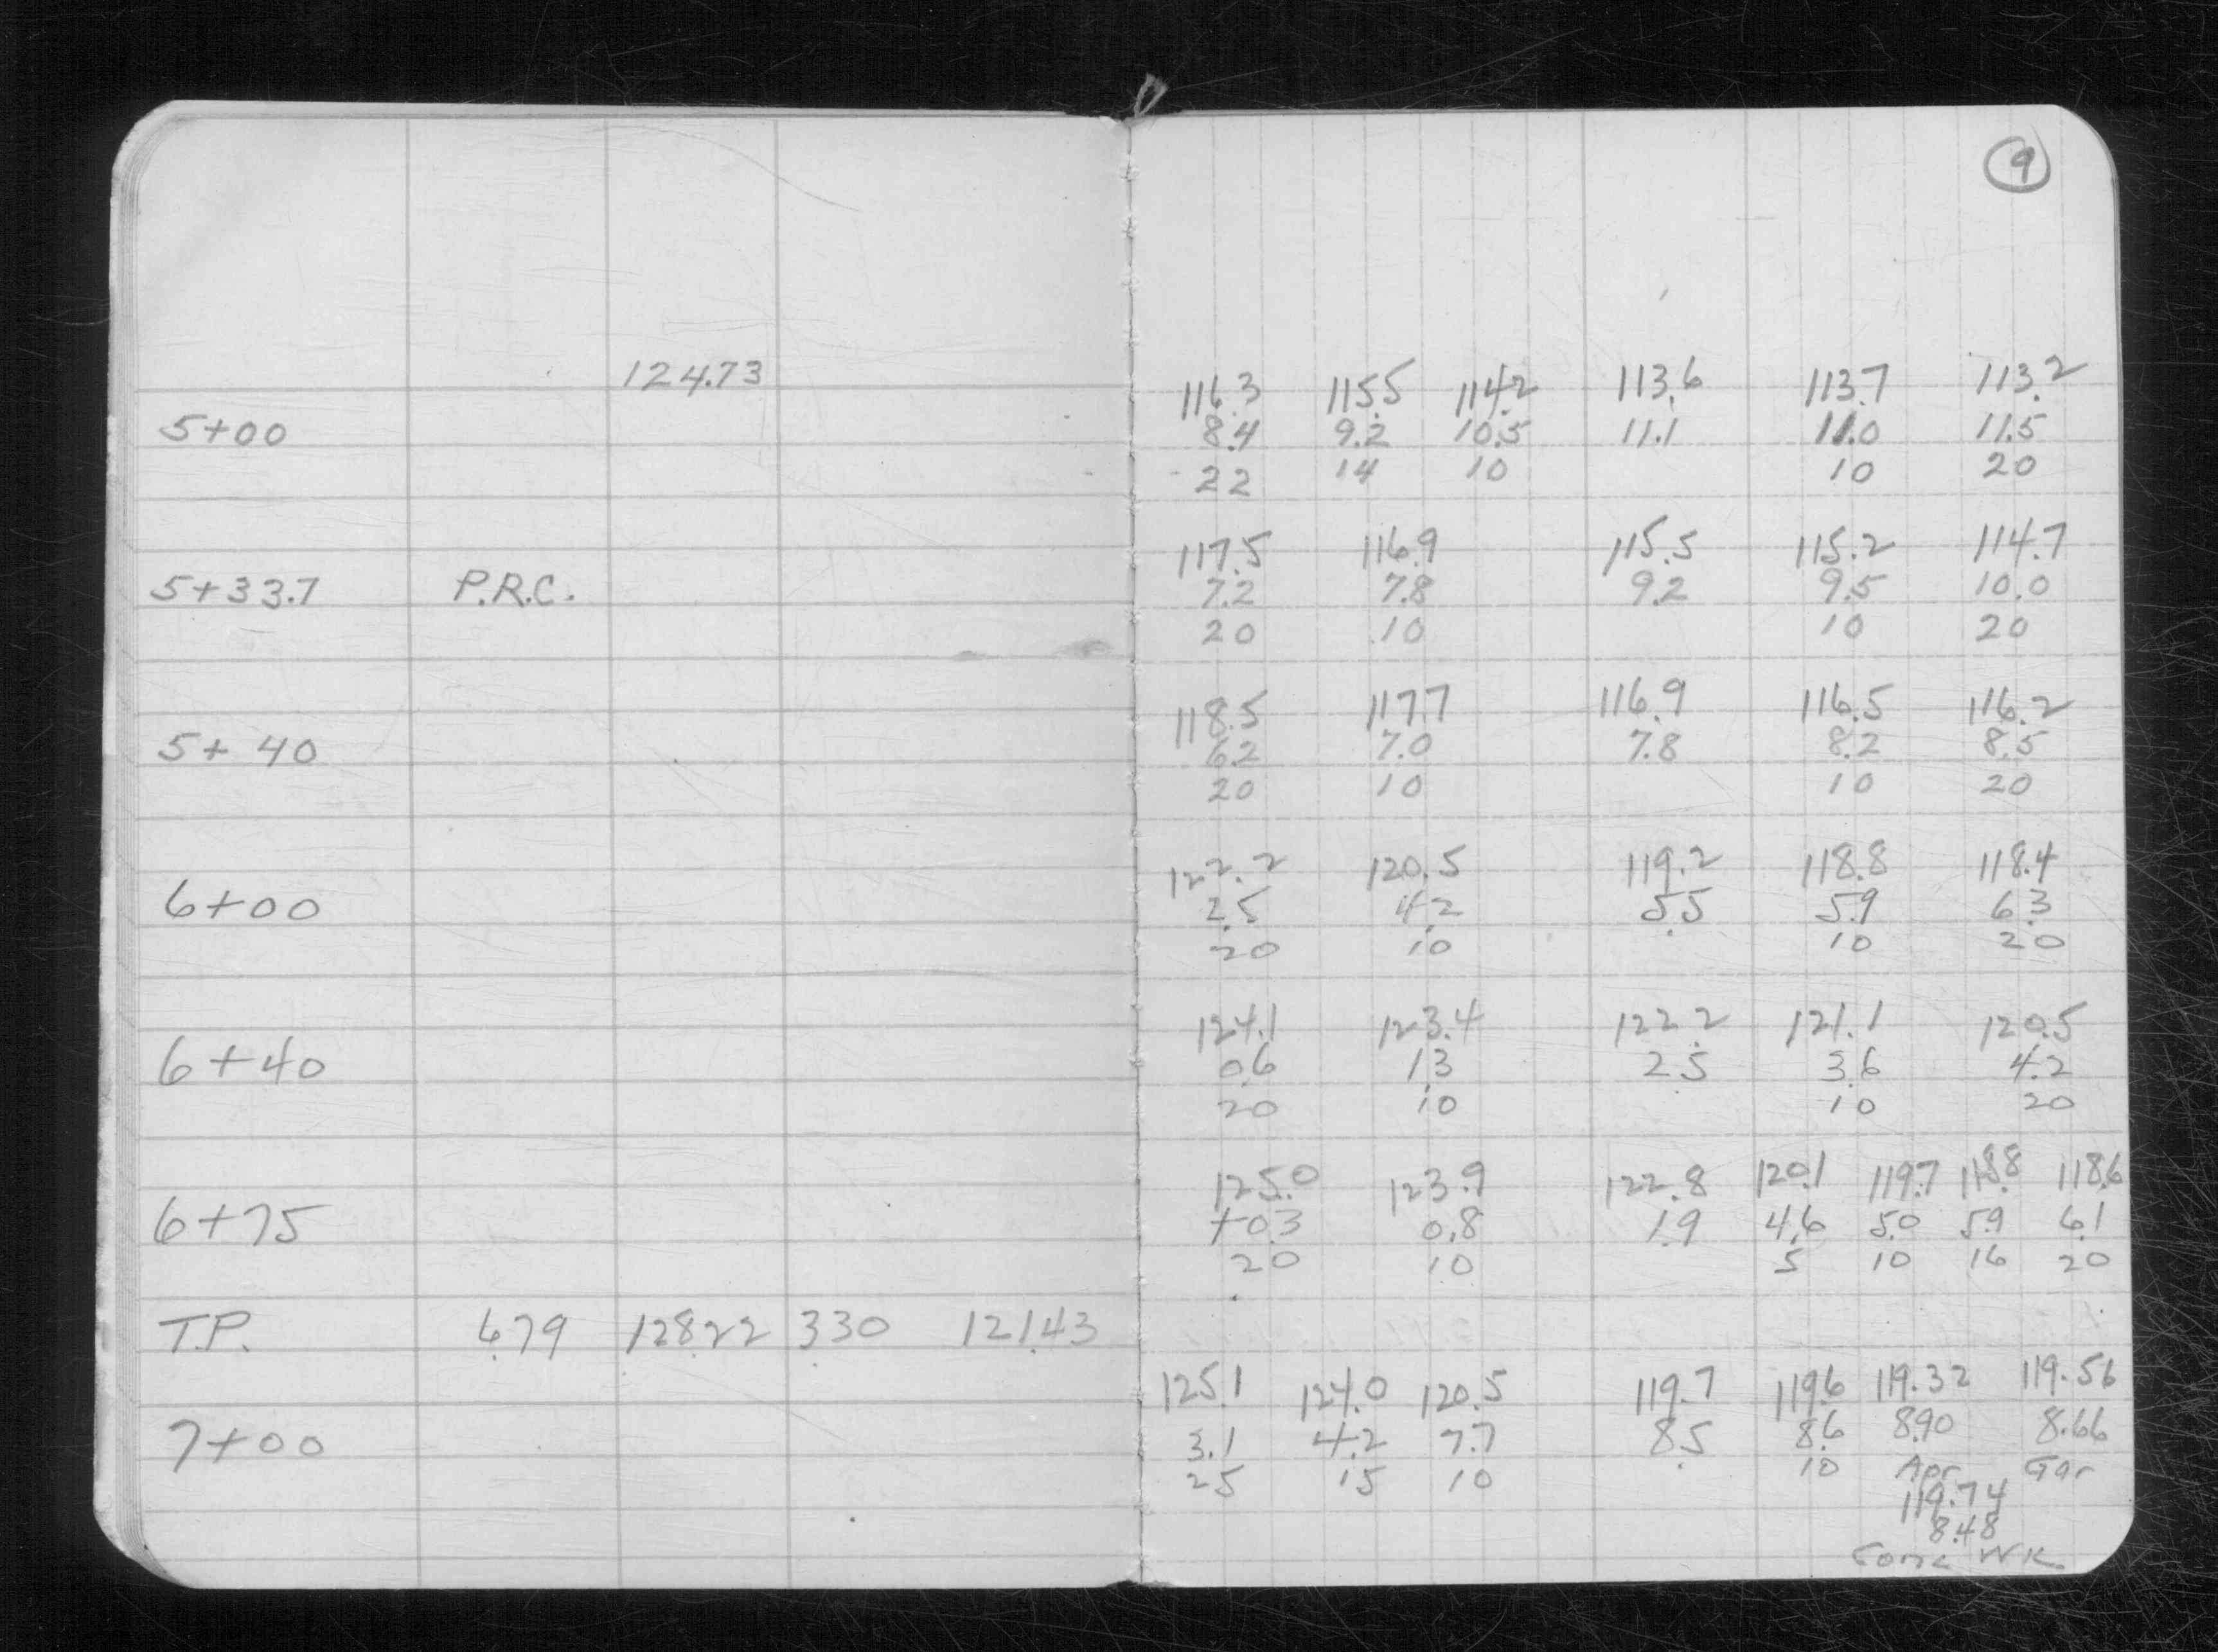 9
124.73
116.3 115.5 114.2 113.6 113.7 113.2
5+00 8.4 9.2 10.5 11.1 11.0 11.5
22 14 10 10 20
117.5 116.9 115.5 115.2 114.7
5+33.7 P.R.C. 7.2 7.8 9.2 9.5 10.0
20 10 10 20
118.5 117.7 116.9 116.5 116.2
5+40 6.2 7.0 7.8 8.2 8.5
20 10 10 20
122.2 120.5 119.2 118.8 118.4
6+00 2.5 4.2 5.5 5.9 6.3
20 10 10 20
124.1 123.4 122.2 121.1 120.5
6+40 0.6 1.3 2.5 3.6 4.2
20 10 10 20
125.0 123.9 122.8 120.1 119.7 118.8 118.6
6+75 +0.3 0.8 1.9 4.6 5.0 5.9 6.1
20 10 5 10 16 20
T.P. 6.79 128.22 3.30 121.43
125.1 124.0 120.5 119.7 119.6 119.32 119.56
7+00 3.1 4.2 7.7 8.5 8.6 8.90 8.66
25 15 10 10 Apr Gar
119.74
8.48
Conc WK